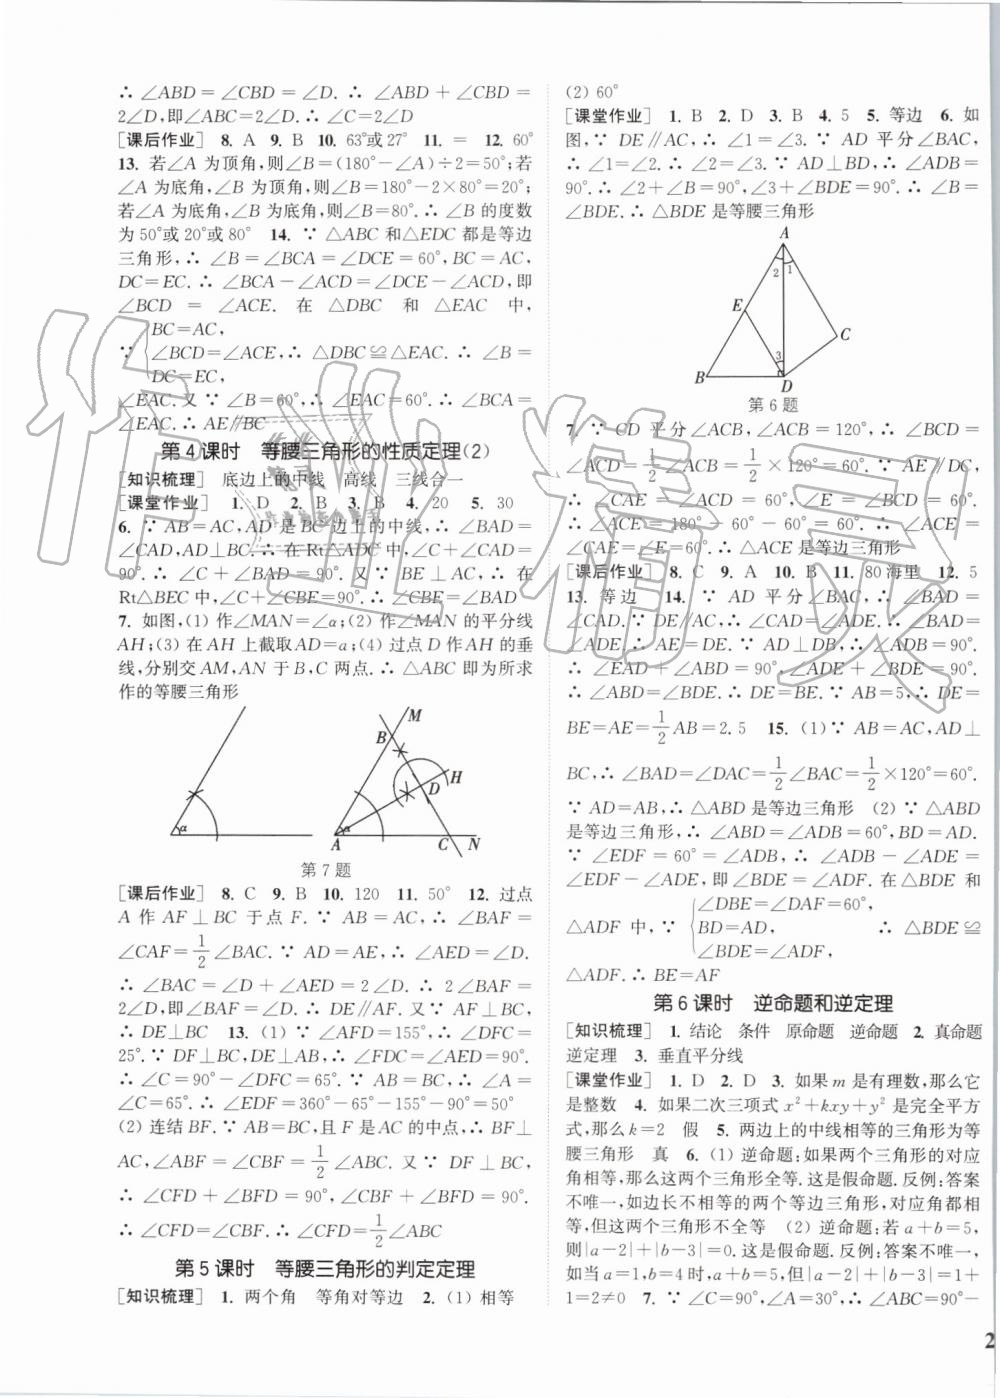 ∴ ∠ABD=∠CBD=∠D. ∴ ∠ABD+∠CBD=
2∠D,即∠ABC=2∠D. ∴ ∠C=2∠D
[课后作业] 8. A 9. B 10. 63°或27° 11. = 12. 60°
13. 若∠A 为顶角,则∠B=(180°-∠A)÷2=50°;若
∠A 为底角,∠B 为顶角,则∠B=180°-2×80°=20°;
若∠A 为底角,∠B 为底角,则∠B=80°. ∴ ∠B 的度数
为 50°或 20°或 80° 14. ∵ △ABC 和△EDC 都是等边
三角形,∴ ∠B=∠BCA=∠DCE=60°,BC=AC,
DC=EC. ∴ ∠BCA-∠ACD=∠DCE-∠ACD,即
∠BCD=∠ACE. 在 △DBC 和 △EAC 中,
BC=AC,
∵ ∠BCD=∠ACE,∴ △DBC≌△EAC. ∴ ∠B=
DC=EC,
∠EAC. 又∵ ∠B=60°,∴ ∠EAC=60°. ∴ ∠BCA=
∠EAC. ∴ AE∥BC
第 4 课时 等腰三角形的性质定理(2)
[知识梳理] 底边上的中线 高线 三线合一
[课堂作业] 1. D 2. B 3. B 4. 20 5. 30
6. ∵ AB=AC,AD 是 BC 边上的中线,∴ ∠BAD=
∠CAD,AD⊥BC. ∴ 在 Rt△ADC 中,∠C+∠CAD=
90°. ∴ ∠C+∠BAD=90°. 又∵ BE⊥AC,∴ 在
Rt△BEC 中,∠C+∠CBE=90°. ∴ ∠CBE=∠BAD
7. 如图,(1) 作∠MAN=∠α;(2) 作∠MAN 的平分线
AH;(3) 在 AH 上截取AD=a;(4) 过点 D 作 AH 的垂
线,分别交 AM,AN 于 B,C 两点. ∴ △ABC 即为所求
作的等腰三角形
α
M
B
H
D
A
α
C
N
第 7 题
[课后作业] 8. C 9. B 10. 120 11. 50° 12. 过点
A 作 AF⊥BC 于点 F. ∵ AB=AC,∴ ∠BAF=
∠CAF=1/2∠BAC. ∵ AD=AE,∴ ∠AED=∠D.
∴ ∠BAC=∠D+∠AED=2∠D. ∴ 2∠BAF=
2∠D,即∠BAF=∠D. ∴ DE∥AF. 又∵ AF⊥BC,
∴ DE⊥BC 13. (1) ∵ ∠AFD=155°,∴ ∠DFC=
25°. ∵ DF⊥BC,DE⊥AB,∴ ∠FDC=∠AED=90°.
∴ ∠C=90°-∠DFC=65°. ∵ AB=BC,∴ ∠A=
∠C=65°. ∴ ∠EDF=360°-65°-155°-90°=50°
(2) 连结 BF. ∵ AB=BC,且 F 是 AC 的中点,∴ BF⊥
AC,∠ABF=∠CBF=1/2∠ABC. 又∵ DF⊥BC,
∴ ∠CFD+∠BFD=90°,∠CBF+∠BFD=90°.
∴ ∠CFD=∠CBF. ∴ ∠CFD=1/2∠ABC
第 5 课时 等腰三角形的判定定理
[知识梳理] 1. 两个角 等角对等边 2. (1) 相等
(2) 60°
[课堂作业] 1. B 2. D 3. B 4. 5 5. 等边 6. 如
图,∵ DE∥AC,∴ ∠1=∠3. ∵ AD 平分∠BAC,
∴ ∠1=∠2. ∴ ∠2=∠3. ∵ AD⊥BD,∴ ∠ADB=
90°. ∴ ∠2+∠B=90°,∠3+∠BDE=90°. ∴ ∠B=
∠BDE. ∴ △BDE 是等腰三角形
A
2
1
E
C
3
B
D
第 6 题
7. ∵ CD 平分∠ACB,∠ACB=120°,∴ ∠BCD=
∠ACD=1/2∠ACB=1/2×120°=60°. ∵ AE∥DC,
∴ ∠CAE=∠ACD=60°,∠E=∠BCD=60°.
∴ ∠ACE=180°-60°-60°=60°. ∴ ∠ACE=
∠CAE=∠E=60°. ∴ △ACE 是等边三角形
[课后作业] 8. C 9. A 10. B 11. 80 海里 12. 5
13. 等边 14. ∵ AD 平分∠BAC,∴ ∠BAD=
∠CAD. ∵ DE∥AC,∴ ∠CAD=∠ADE. ∴ ∠BAD=
∠ADE. ∴ AE=DE. ∵ AD⊥DB,∴ ∠ADB=90°.
∴ ∠EAD+∠ABD=90°,∠ADE+∠BDE=90°.
∴ ∠ABD=∠BDE. ∴ DE=BE. ∵ AB=5,∴ DE=
BE=AE=1/2AB=2.5 15. (1) ∵ AB=AC,AD⊥
BC,∴ ∠BAD=∠DAC=1/2∠BAC=1/2×120°=60°.
∵ AD=AB,∴ △ABD 是等边三角形 (2) ∵ △ABD
是等边三角形,∴ ∠ABD=∠ADB=60°,BD=AD.
∵ ∠EDF=60°=∠ADB,∴ ∠ADB-∠ADE=
∠EDF-∠ADE,即∠BDE=∠ADF. 在△BDE 和
∠DBE=∠DAF=60°,
△ADF 中,∵ BD=AD, ∴ △BDE≌
∠BDE=∠ADF,
△ADF. ∴ BE=AF
第 6 课时 逆命题和逆定理
[知识梳理] 1. 结论 条件 原命题 逆命题 2. 真命题
逆定理 3. 垂直平分线
[课堂作业] 1. D 2. D 3. 如果 m 是有理数,那么它
是整数 4. 如果二次三项式 x²+kxy+y² 是完全平方
式,那么 k=2 假 5. 两边上的中线相等的三角形为等
腰三角形 真 6. (1) 逆命题:如果两个三角形的对应
角相等,那么这两个三角形全等. 这是假命题. 反例:答案
不唯一,如边长不相等的两个等边三角形,对应角都相
等,但这两个三角形不全等 (2) 逆命题:若 a+b=5,
则|a-2|+|b-3|=0. 这是假命题. 反例:答案不唯一,
如当 a=1,b=4 时,a+b=5,但|a-2|+|b-3|=1+
1=2≠0 7. ∵ ∠C=90°,∠A=30°,∴ ∠ABC=90°-
2
作业精灵